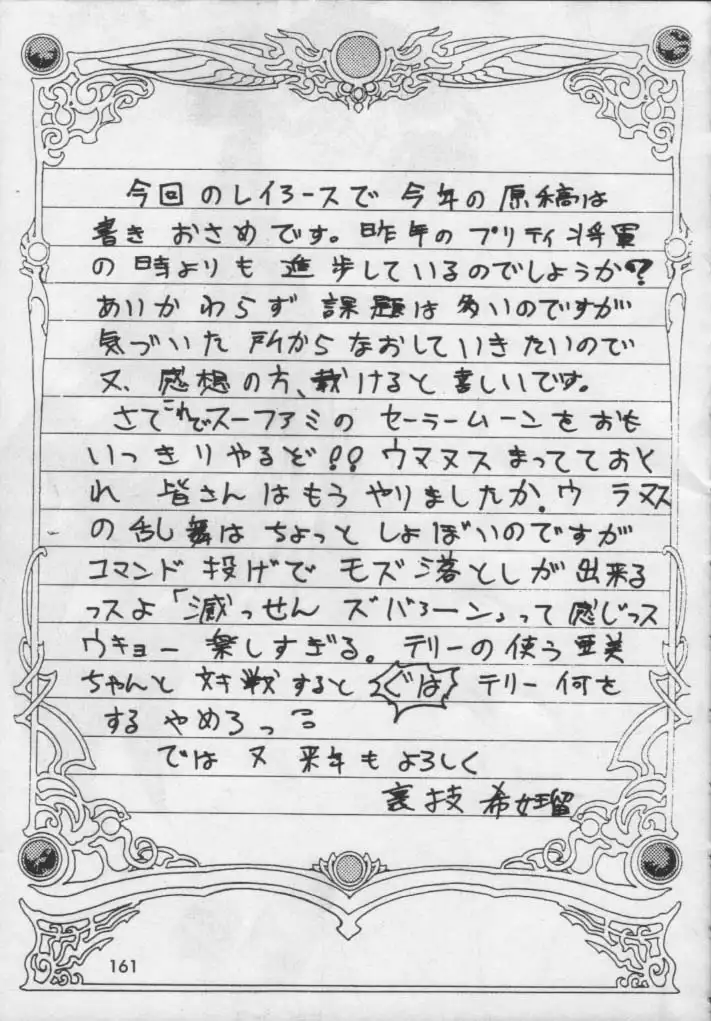 今回のレイろースで 今年の原稿は
書き おさめです。昨年の プリティ将軍
の 時よりも 進歩しているのでしょうか?
あいかわらず 課題は 多いのですが
気づいた 所から なおしていきたいので
又、感想の方、載けると 喜しいです。
さて これで スーファミの セーラームーンを おも
いっきり やるぞ!! ウマヌス まっててておく
れ 皆さんは もう やりましたか。ウラヌス
の 乱舞は ちょっと しょぼいのですが
コマンド 投げで モズ落としが 出来る
っスよ「滅っせん ズバろーン」って 感じっス
ウキョー 楽しすぎる。テリーの 使う 亜美
ちゃんと 対戦すると ぐは テリー 何を
する やめろっ
では 又 来年も よろしく
裏技 希妊留
161